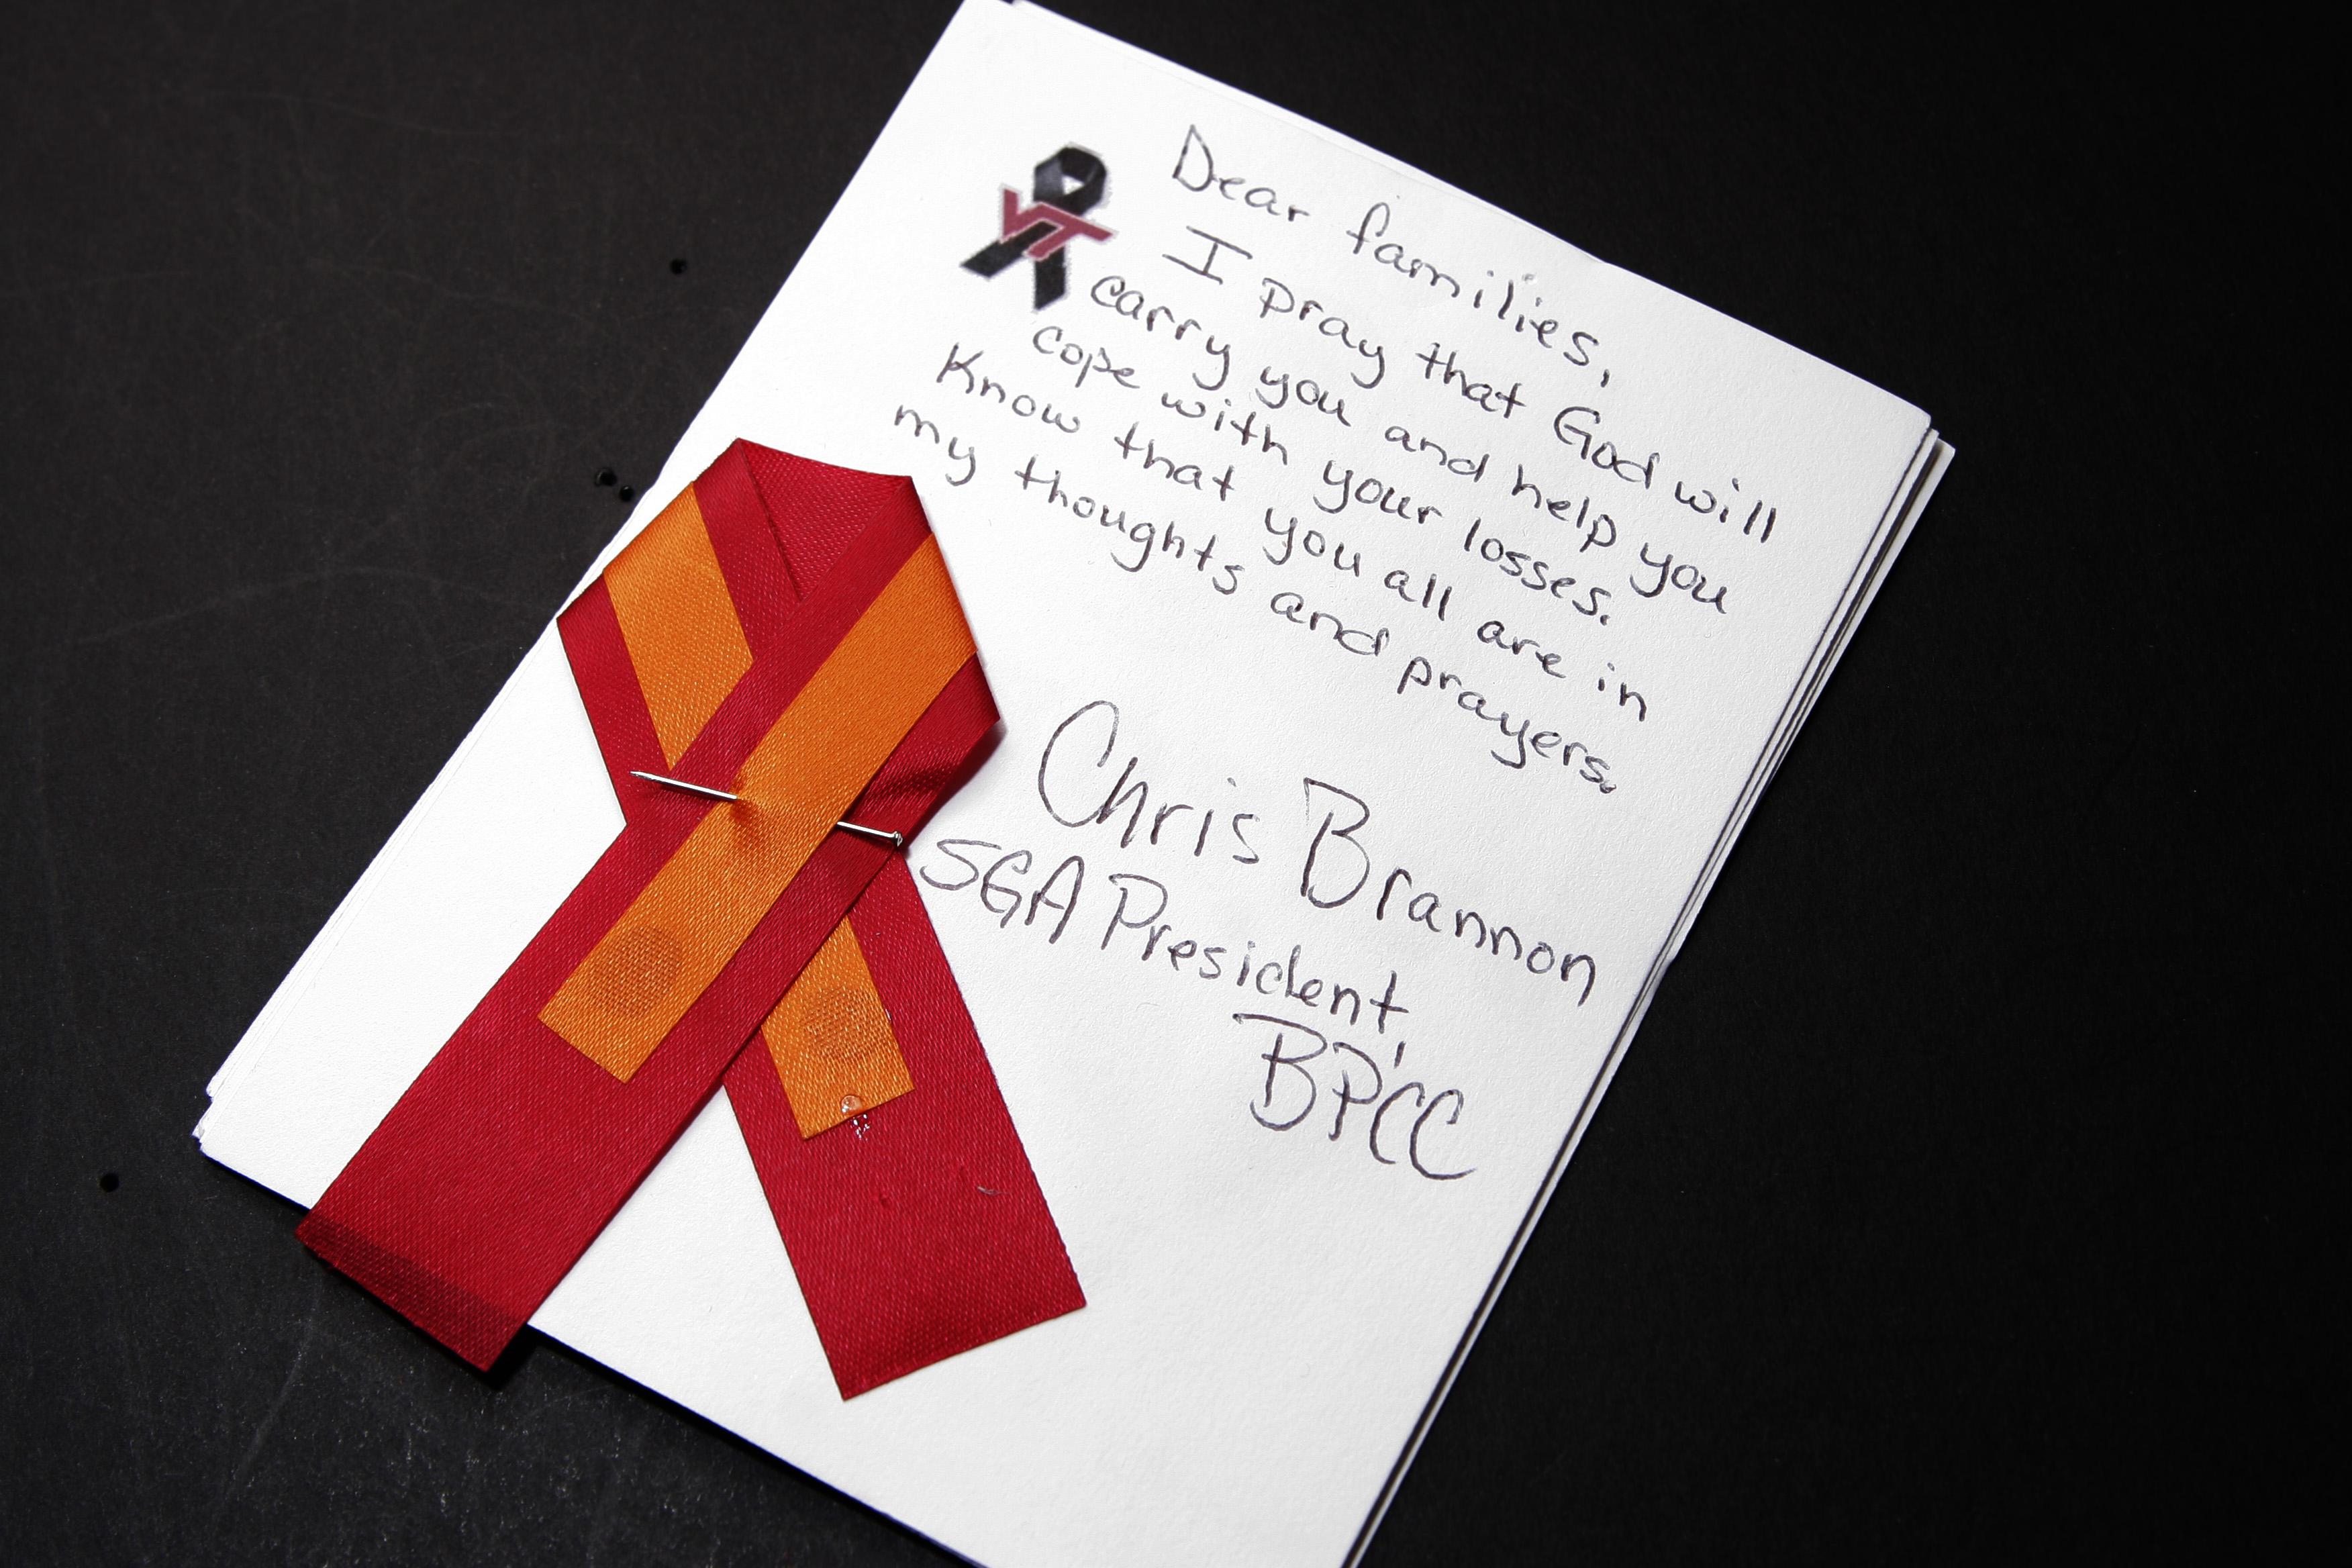 VT
Dear families,
I pray that God will
carry you and help you
cope with your losses.
Know that you all are in
my thoughts and prayers.
Chris Brannon
SGA President,
BPCC